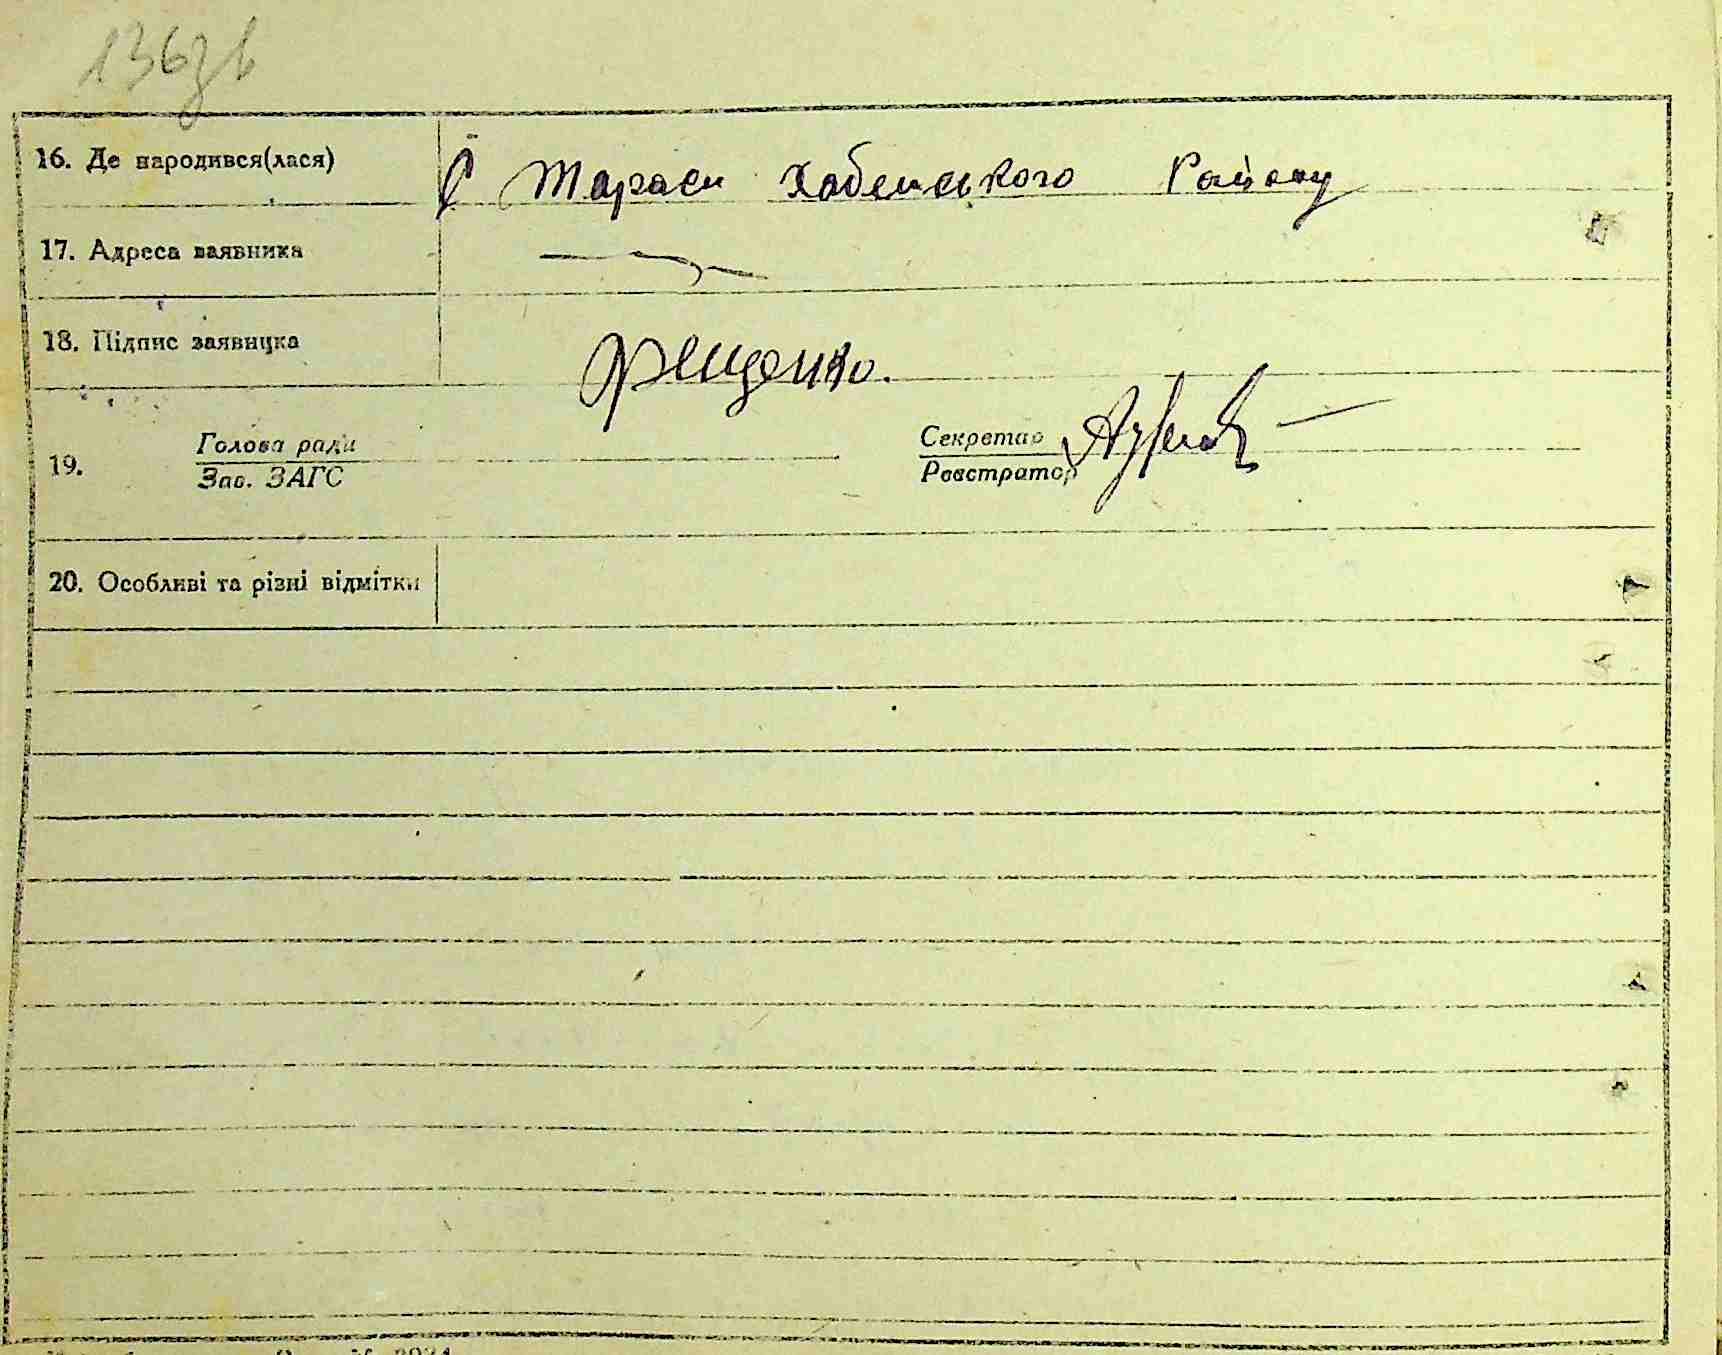 136зв
16. Де народився(лася) С Тараси Хабенського Району
17. Адреса заявника
18. Підпис заявника Фещенко.
19. Голова ради Секретар
Зав. ЗАГС Реєстратор
20. Особливі та різні відмітки